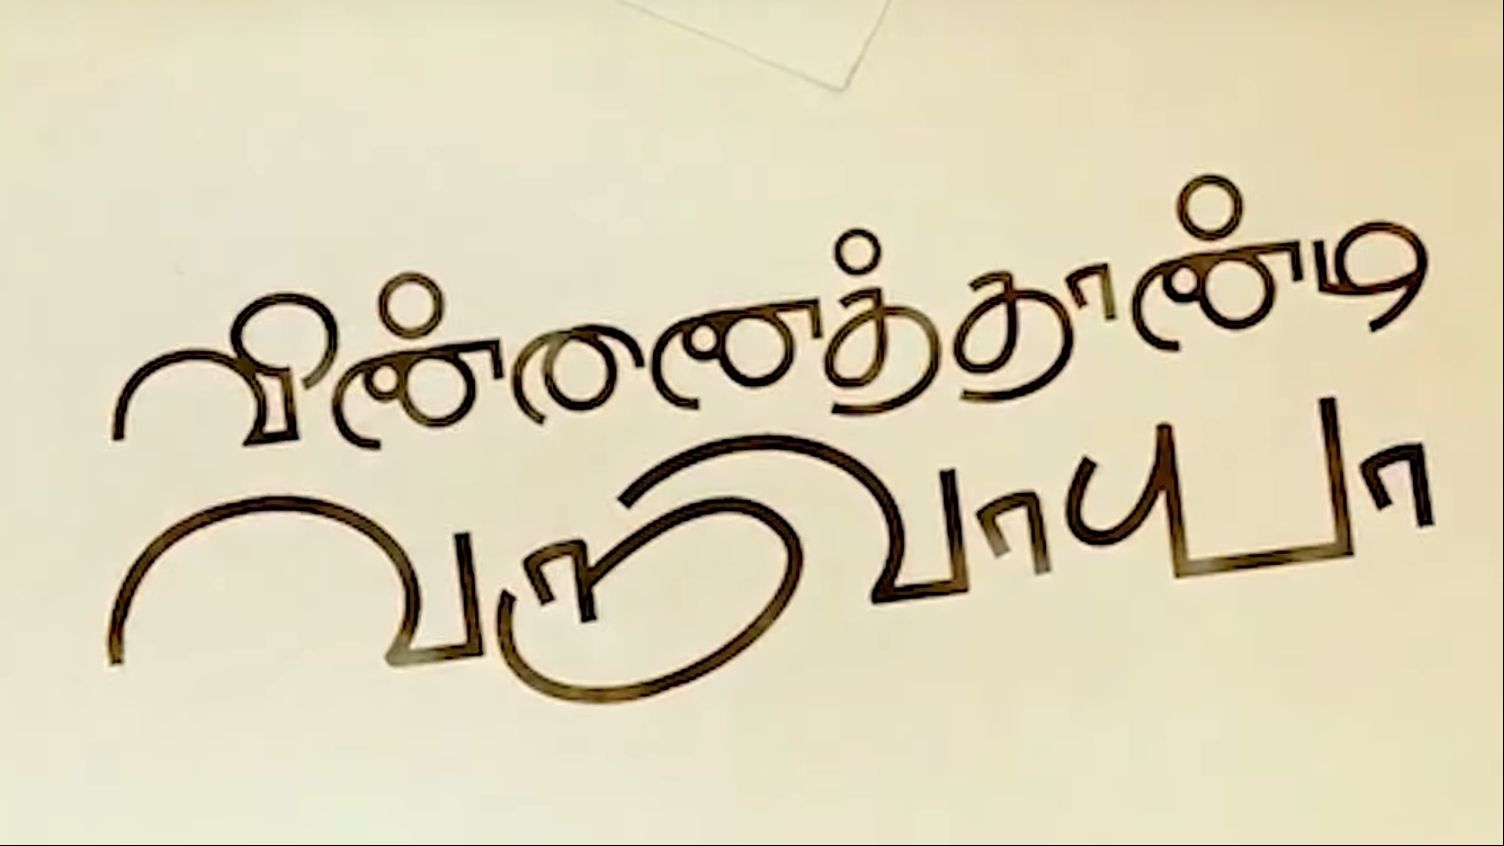 விண்ணைத்தாண்டி
வருவாயா